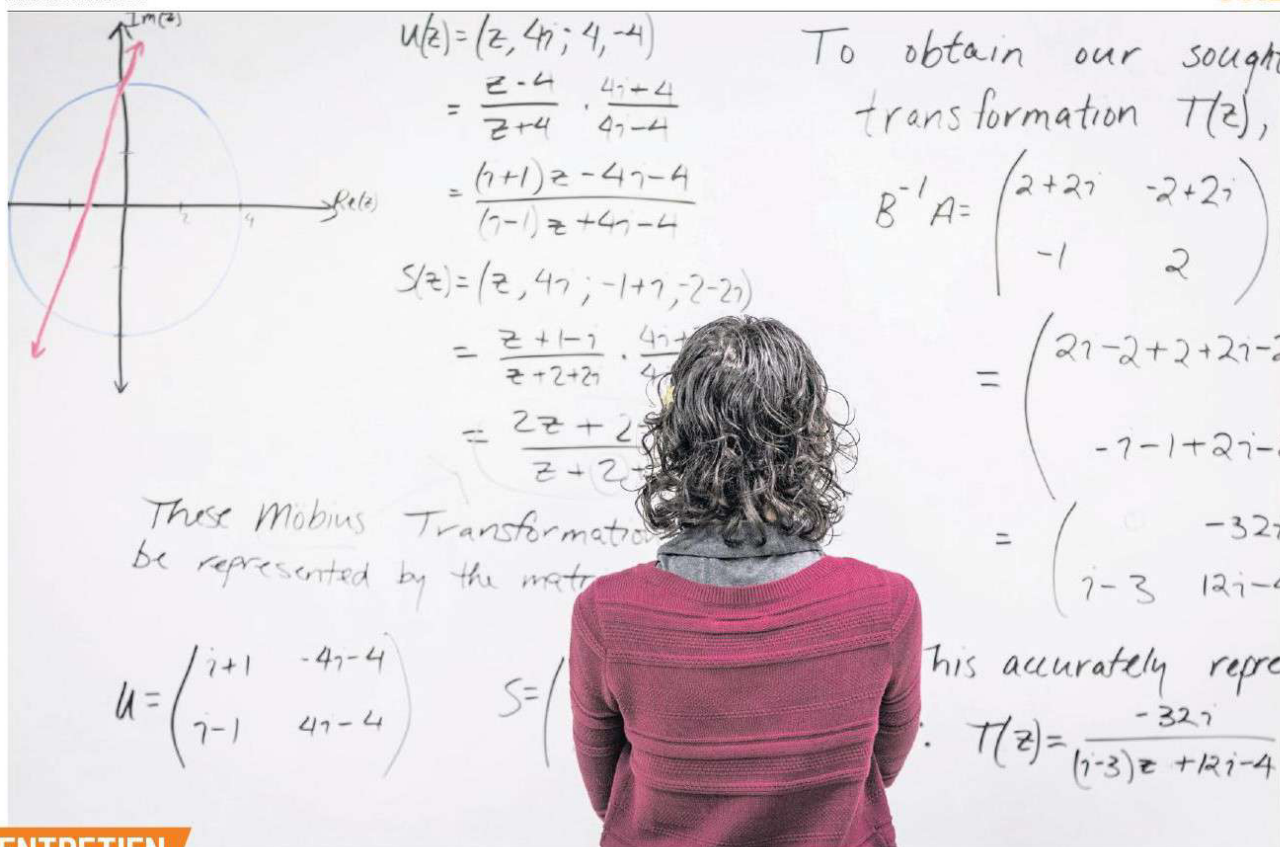 Im(z)
Re(z)
2
4
U(z)=(z, 4i; 4,-4)
= z-4/z+4 · 4i+4/4i-4
= (i+1)z-4i-4/(i-1)z+4i-4
S(z)=(z, 4i; -1+i,-2-2i)
= z+1-i/z+2+2i · 4i+
= 2z+2/z+2
These Möbius Transformatio
be represented by the matr
U= (i+1 -4i-4
i-1 4i-4)
S=(
To obtain our sought
transformation T(z),
B⁻¹A= (2+2i -2+2i
-1 2)
= (2i-2+2+2i-2
-i-1+2i-
= ( -32i
i-3 12i-4
his accurately repre
. T(z)= -32i/(i-3)z+12i-4
ENTRETIEN